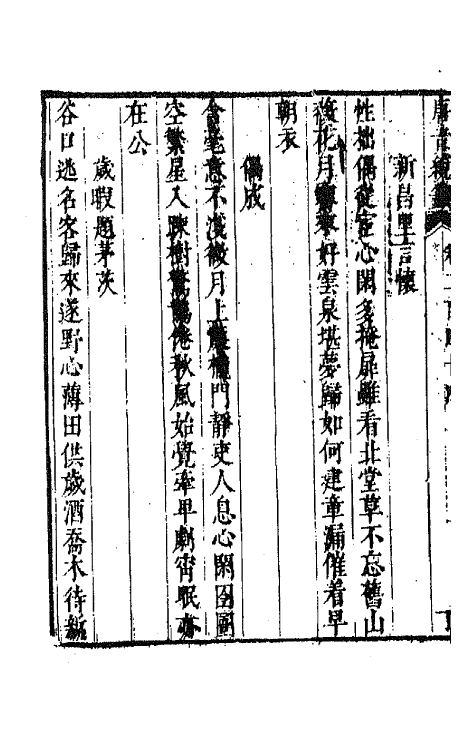 唐音統籤 卷二百四十
新昌里言懷
性拙偶從宦心閑多掩扉雖看北堂草不忘舊山
薇花月好雲泉堪夢歸如何建章漏催着早
朝衣
偶成
含毫意不淺微月上簾櫳門靜吏人息心閑囹圄
空繁星入疎樹驚鵲倦秋風始覺牽卑劇宵眠亦
在公
歲暇題茅茨
谷口逃名客歸來遂野心薄田供歲酒喬木待新